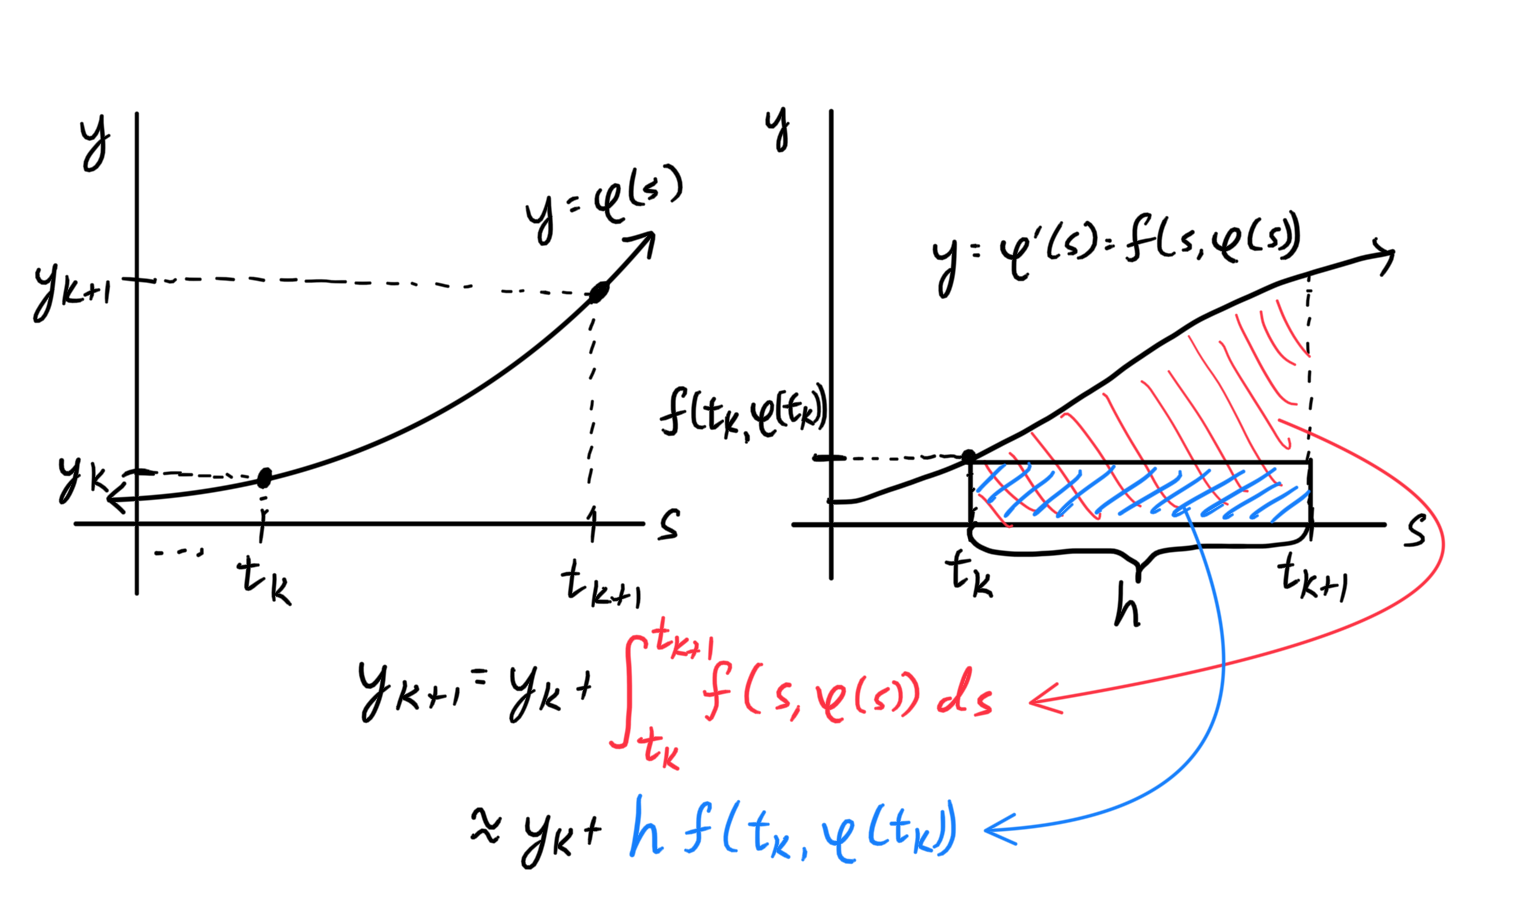 y
y = φ(s)
y_{k+1}
y_k
s
...
t_k
t_{k+1}
y
y = φ'(s) = f(s, φ(s))
f(t_k, φ(t_k))
s
t_k
t_{k+1}
h
y_{k+1} = y_k + ∫_{t_k}^{t_{k+1}} f(s, φ(s)) ds
≈ y_k + h f(t_k, φ(t_k))